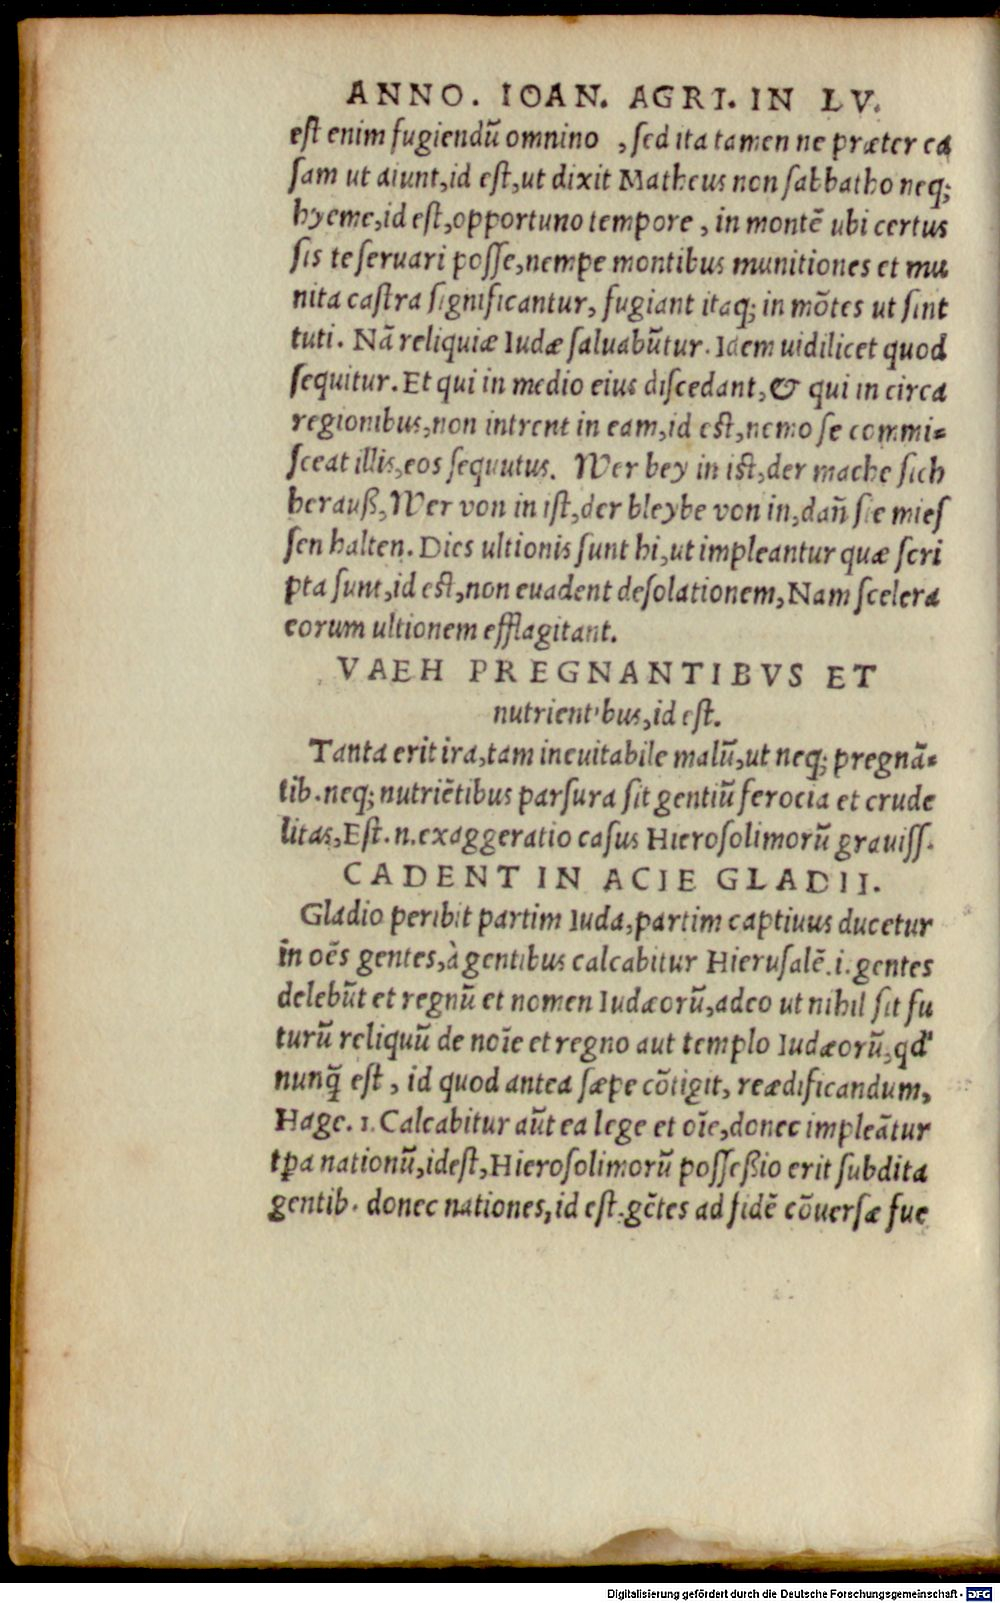 ANNO. IOAN. AGRI. IN LV.
est enim fugiendũ omnino , sed ita tamen ne præter ca
sam ut aiunt, id est, ut dixit Matheus non sabbatho neq;
hyeme, id est, opportuno tempore , in montẽ ubi certus
sis te seruari posse, nempe montibus munitiones et mu
nita castra significantur, fugiant itaq; in mõtes ut sint
tuti. Nã reliquiæ Iudæ saluabũtur. Idem uidilicet quod
sequitur. Et qui in medio eius discedant, & qui in circa
regionibus, non intrent in eam, id est, nemo se commi=
sceat illis, eos sequutus. Wer bey in ist, der mache sich
herauß, Wer von in ist, der bleybe von in, dañ sie mies
sen halten. Dies ultionis sunt hi, ut impleantur quæ scri
pta sunt, id est, non euadent desolationem, Nam scelera
eorum ultionem efflagitant.
VAEH PREGNANTIBVS ET
nutrientibus, id est.
Tanta erit ira, tam ineuitabile malũ, ut neq; pregnã=
tib. neq; nutriẽtibus parsura sit gentiũ ferocia et crude
litas, Est. n. exaggeratio casus Hierosolimorũ grauiss.
CADENT IN ACIE GLADII.
Gladio peribit partim Iuda, partim captiuus ducetur
in oẽs gentes, à gentibus calcabitur Hierusalẽ. i. gentes
delebũt et regnũ et nomen Iudæorũ, adeo ut nihil sit fu
turũ reliquũ de noĩe et regno aut templo Iudæorũ, qd'
nunq̃ est , id quod antea sæpe cõtigit, reædificandum,
Hage. 1. Calcabitur aũt ea lege et oĩe, donec impleãtur
tꝑa nationũ, idest, Hierosolimorũ posseßio erit subdita
gentib. donec nationes, id est. gẽtes ad fidẽ cõuersæ fue
Digitalisierung gefördert durch die Deutsche Forschungsgemeinschaft - DFG